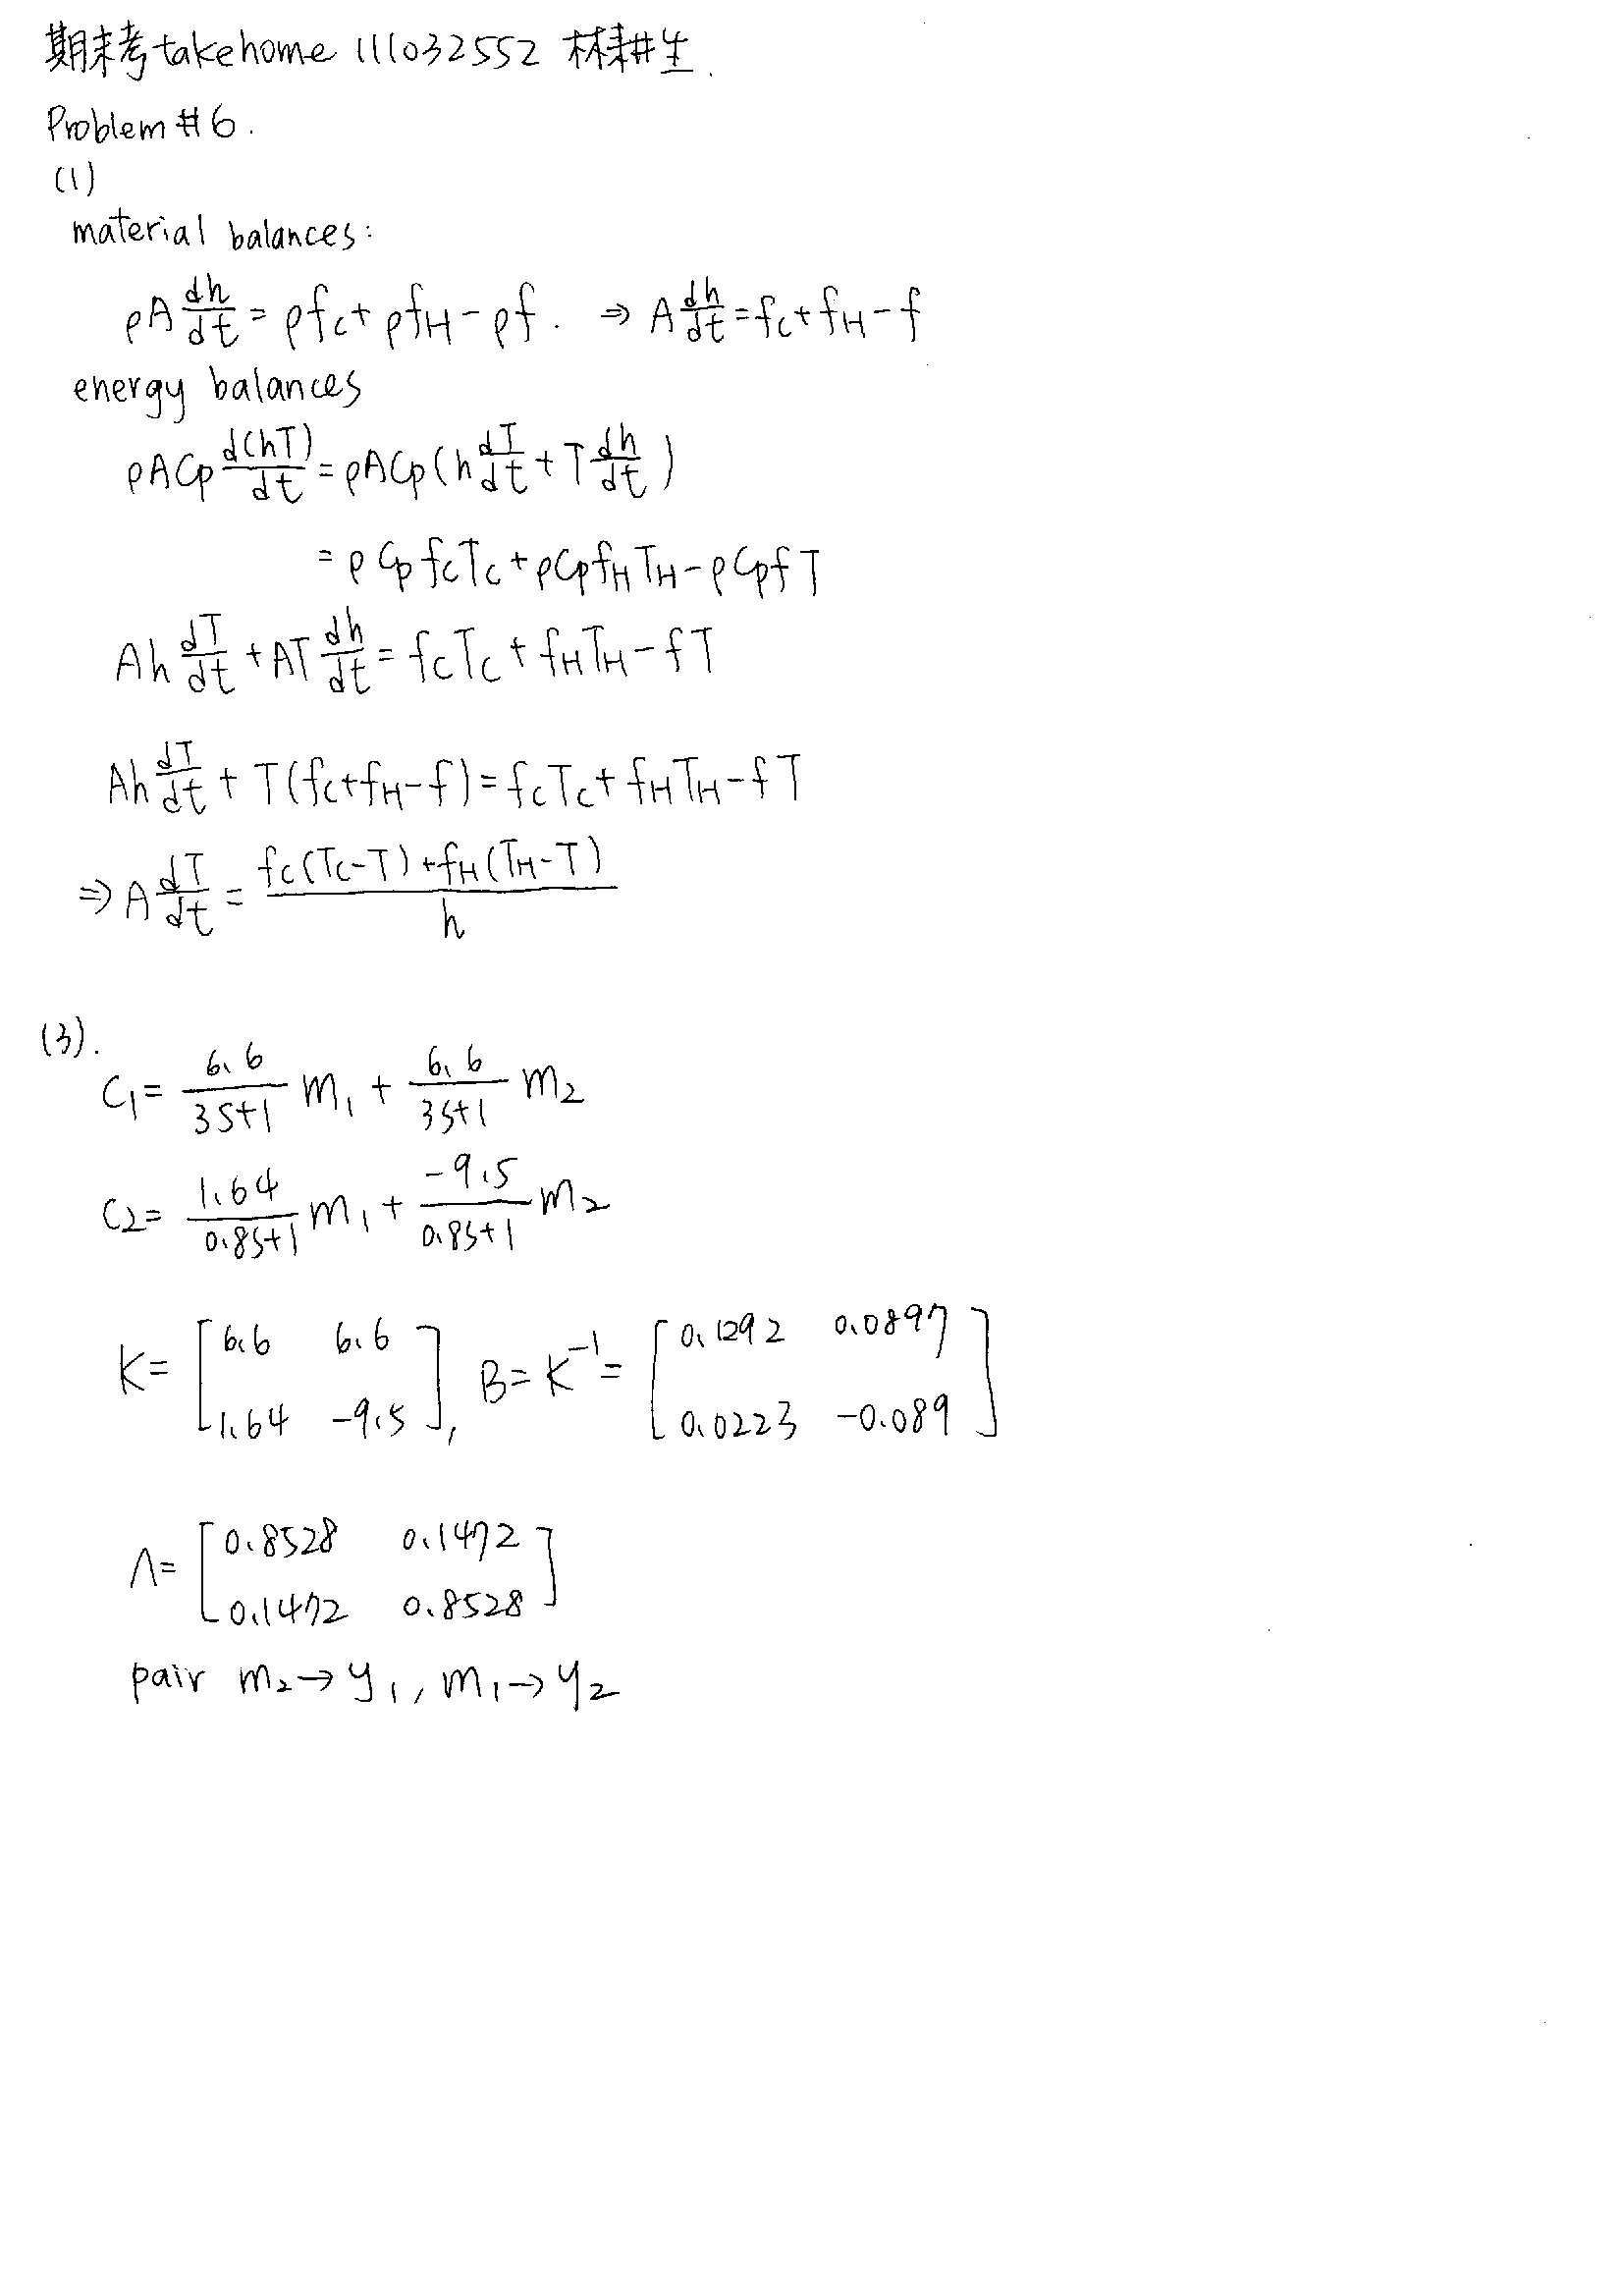 期末考takehome 111032552 林耕生.
Problem #6.
(1)
material balances:
ρA dh/dt = ρfc + ρfH - ρf. ⇒ A dh/dt = fc + fH - f
energy balances
ρACp d(hT)/dt = ρACp(h dT/dt + T dh/dt)
= ρCp fcTc + ρCpfH TH - ρCpf T
Ah dT/dt + AT dh/dt = fcTc + fHTH - fT
Ah dT/dt + T(fc+fH-f) = fcTc + fHTH - fT
⇒ A dT/dt = (fc(Tc-T) + fH(TH-T))/h
(3).
C1 = 6.6/(3s+1) m1 + 6.6/(3s+1) m2
C2 = 1.64/(0.8s+1) m1 + -9.5/(0.8s+1) m2
K = [6.6 6.6; 1.64 -9.5], B = K^-1 = [0.1292 0.0897; 0.0223 -0.089]
Λ = [0.8528 0.1472; 0.1472 0.8528]
pair m2→y1, m1→y2